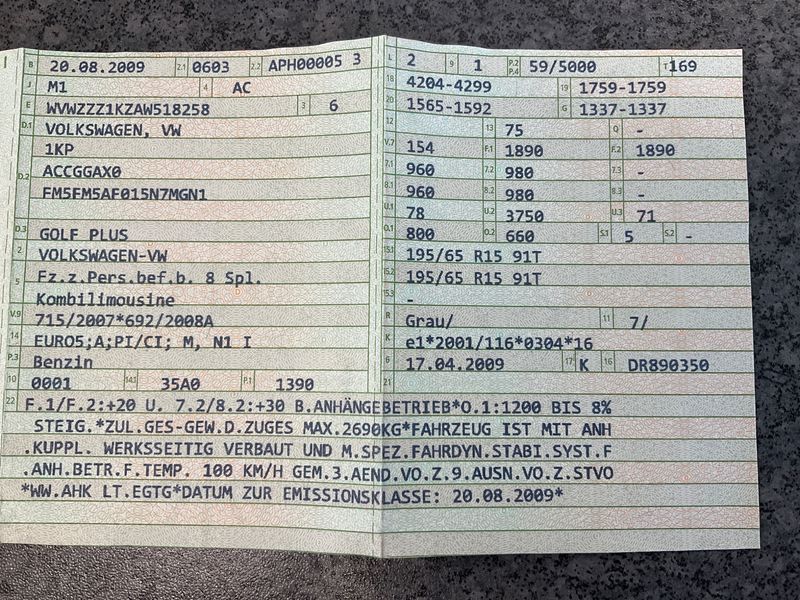 B 20.08.2009 2.1 0603 2.2 APH00005 3
J M1 4 AC
E WVWZZZ1KZAW518258 3 6
D.1 VOLKSWAGEN, VW
1KP
D.2 ACCGGAX0
FM5FM5AF015N7MGN1
D.3 GOLF PLUS
2 VOLKSWAGEN-VW
5 Fz.z.Pers.bef.b. 8 Spl.
Kombilimousine
V.9 715/2007*692/2008A
14 EURO5;A;PI/CI; M, N1 I
P.3 Benzin
10 0001 14.1 35A0 P.1 1390
L 2 9 1 P.2 P.4 59/5000 T 169
18 4204-4299 19 1759-1759
20 1565-1592 G 1337-1337
12 13 75 Q -
V.7 154 F.1 1890 F.2 1890
7.1 960 7.2 980 7.3 -
8.1 960 8.2 980 8.3 -
U.1 78 U.2 3750 U.3 71
O.1 800 O.2 660 S.1 5 S.2 -
15.1 195/65 R15 91T
15.2 195/65 R15 91T
15.3 -
R Grau/ 11 7/
K e1*2001/116*0304*16
6 17.04.2009 17 K 16 DR890350
21
22 F.1/F.2:+20 U. 7.2/8.2:+30 B.ANHÄNGEBETRIEB*O.1:1200 BIS 8%
STEIG.*ZUL.GES-GEW.D.ZUGES MAX.2690KG*FAHRZEUG IST MIT ANH
.KUPPL. WERKSSEITIG VERBAUT UND M.SPEZ.FAHRDYN.STABI.SYST.F
.ANH.BETR.F.TEMP. 100 KM/H GEM.3.AEND.VO.Z.9.AUSN.VO.Z.STVO
*WW.AHK LT.EGTG*DATUM ZUR EMISSIONSKLASSE: 20.08.2009*